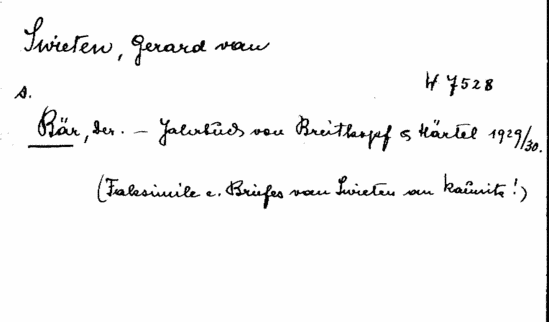 Swieten, Gerard van
W 7528
s.
Bär, Der. - Jahrbuch von Breitkopf & Härtel 1929/30.
(Faksimile e. Briefes van Swieten an Kaunitz!)